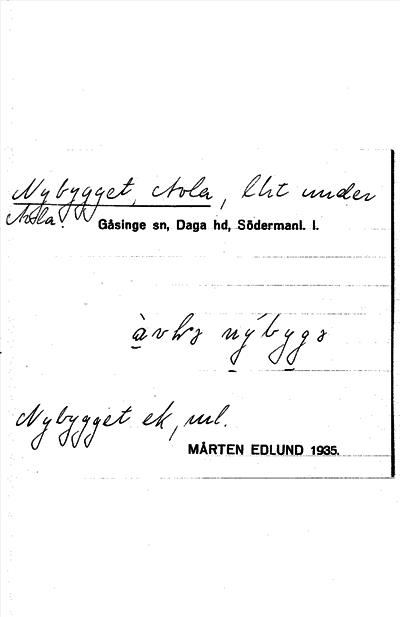 Nybygget, Nola, lht under
Nola.
Gåsinge sn, Daga hd, Södermanl. l.
nýbygs
Nybygget ek, ml.
MÅRTEN EDLUND 1935.